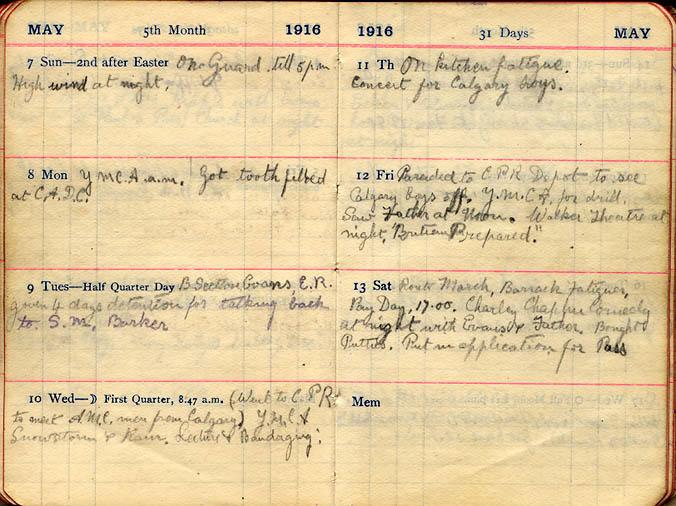 MAY 5th Month 1916
7 Sun—2nd after Easter On Guard till 5 pm
High wind at night.
8 Mon Y.M.C.A a.m. Got tooth filled
at C.A.D.C.
9 Tues—Half Quarter Day B Section Evans, E.R.
given 4 days detention for talking back
to S.M. Barker
10 Wed—☽ First Quarter, 8.47 a.m. (Went to C.P.R.
to meet A.M.C. men from Calgary) Y.M.C.A
Snowstorm & Rain. Lecture & Bandaging.
1916 31 Days MAY
11 Th On kitchen fatigue.
Concert for Calgary boys.
12 Fri Paraded to C.P.R Depot to see
Calgary boys off. Y.M.C.A. for drill.
Saw Father at Noon. Walker Theatre at
night, "Britain Prepared."
13 Sat Route March, Barrack fatigues,
Pay Day, 17.00. Charley Chaplin Comedy
at night with Evans & Father. Bought
Putties. Put in application for Pass
Mem